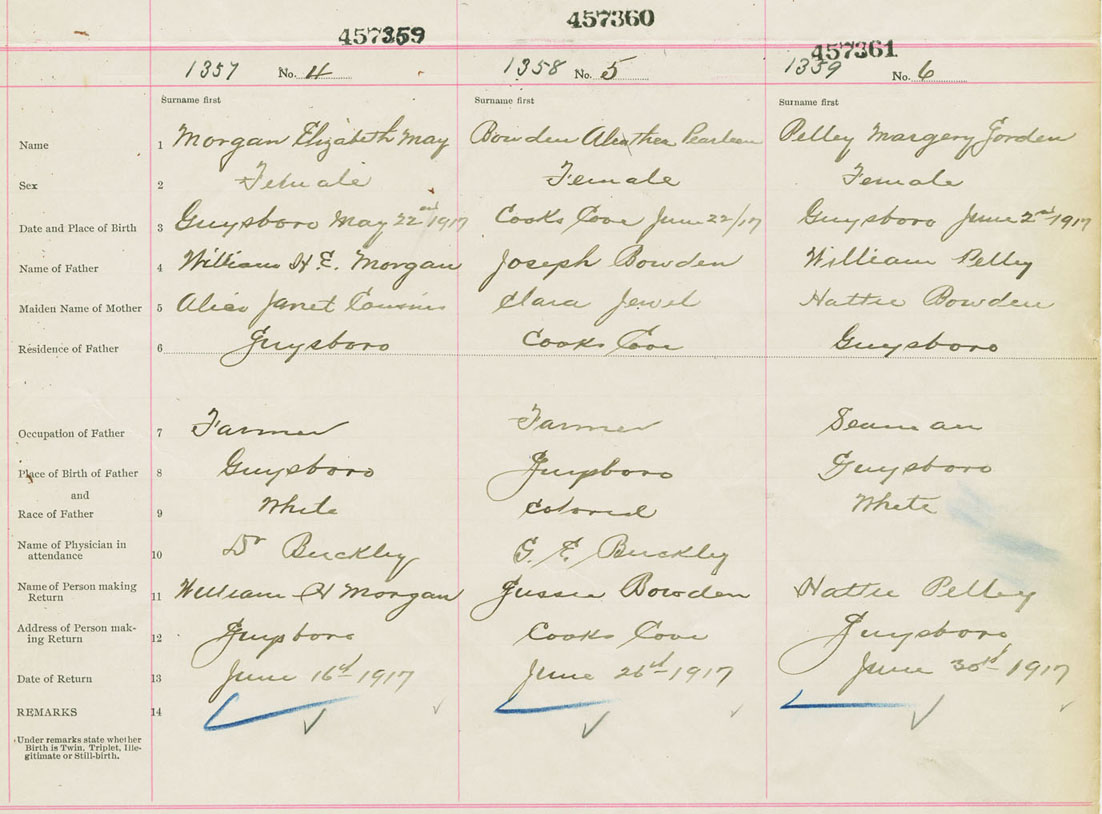 457359 457360 457361
1357 No. 4 1358 No. 5 1359 No. 6
Surname first Surname first Surname first
Name 1 Morgan Elizabeth May Bowden Pearleen Pelley Margery Gorden
Sex 2 Female Female Female
Date and Place of Birth 3 Guysboro May 22nd 1917 Cooks Cove June 22/17 Guysboro June 2nd 1917
Name of Father 4 William H. E. Morgan Joseph Bowden William Pelley
Maiden Name of Mother 5 Alice Janet Cousins Clara Jewel Hattie Bowden
Residence of Father 6 Guysboro Cooks Cove Guysboro
Occupation of Father 7 Farmer Farmer Seaman
Place of Birth of Father 8 Guysboro Guysboro Guysboro
and
Race of Father 9 White Colored White
Name of Physician in
attendance 10 Dr Buckley G. E. Buckley
Name of Person making
Return 11 William H Morgan Jussie Bowden Hattie Pelley
Address of Person mak-
ing Return 12 Guysboro Cooks Cove Guysboro
Date of Return 13 June 16th 1917 June 26th 1917 June 30th 1917
REMARKS 14
Under remarks state whether
Birth is Twin, Triplet, Ille-
gitimate or Still-birth.